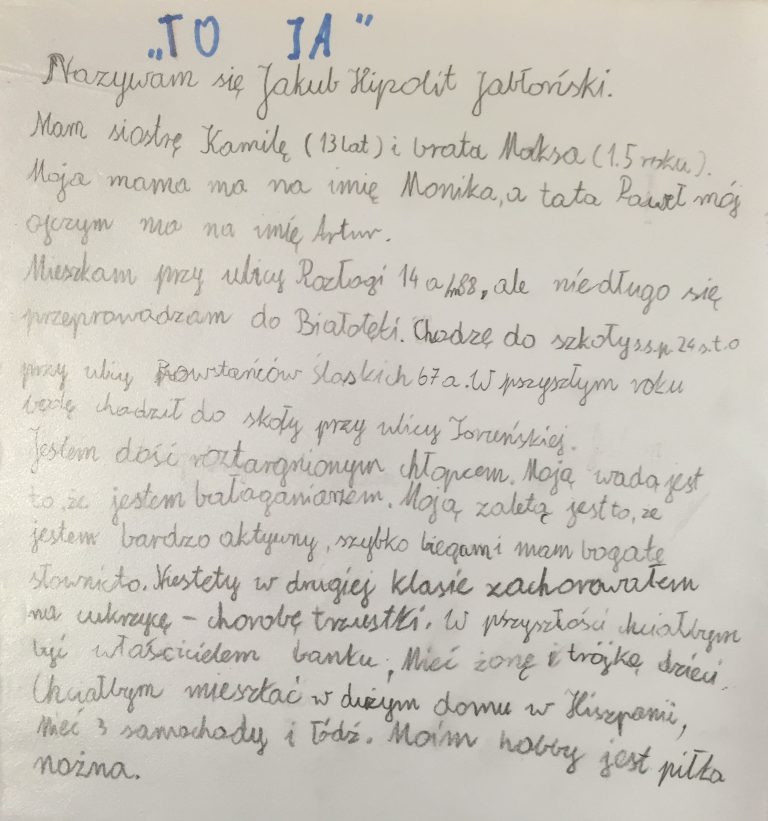 „TO JA”
Nazywam się Jakub Hipolit Jabłoński.
Mam siostrę Kamilę (13 lat) i brata Maksa (1.5 roku).
Moja mama ma na imię Monika, a tata Paweł mój
ojczym ma na imię Artur.
Mieszkam przy ulicy Rozłogi 14 a m88, ale niedługo się
przeprowadzam do Białołęki. Chodzę do szkoły s.s.p. 24 s.t.o
przy ulicy Powstańców śląskich 67a. W pszyszłym roku
będę chodził do skoły przy ulicy Toruńskiej.
Jestem dość roztargnionym chłopcem. Moją wadą jest
to, że jestem bałaganiarzem. Moją zaletą jest to, że
jestem bardzo aktywny, szybko biegam i mam bogate
słownicto. Niestety w drugiej klasie zachorowałem
na cukrzycę – chorobę trzustki. W przyszłości chciałbym
być właścicielem banku, Mieć żonę i trójkę dzieci.
Chciałbym mieszkać w dużym domu w Hiszpanii,
Mieć 3 samochody i łódź. Moim hobby jest piłka
nożna.